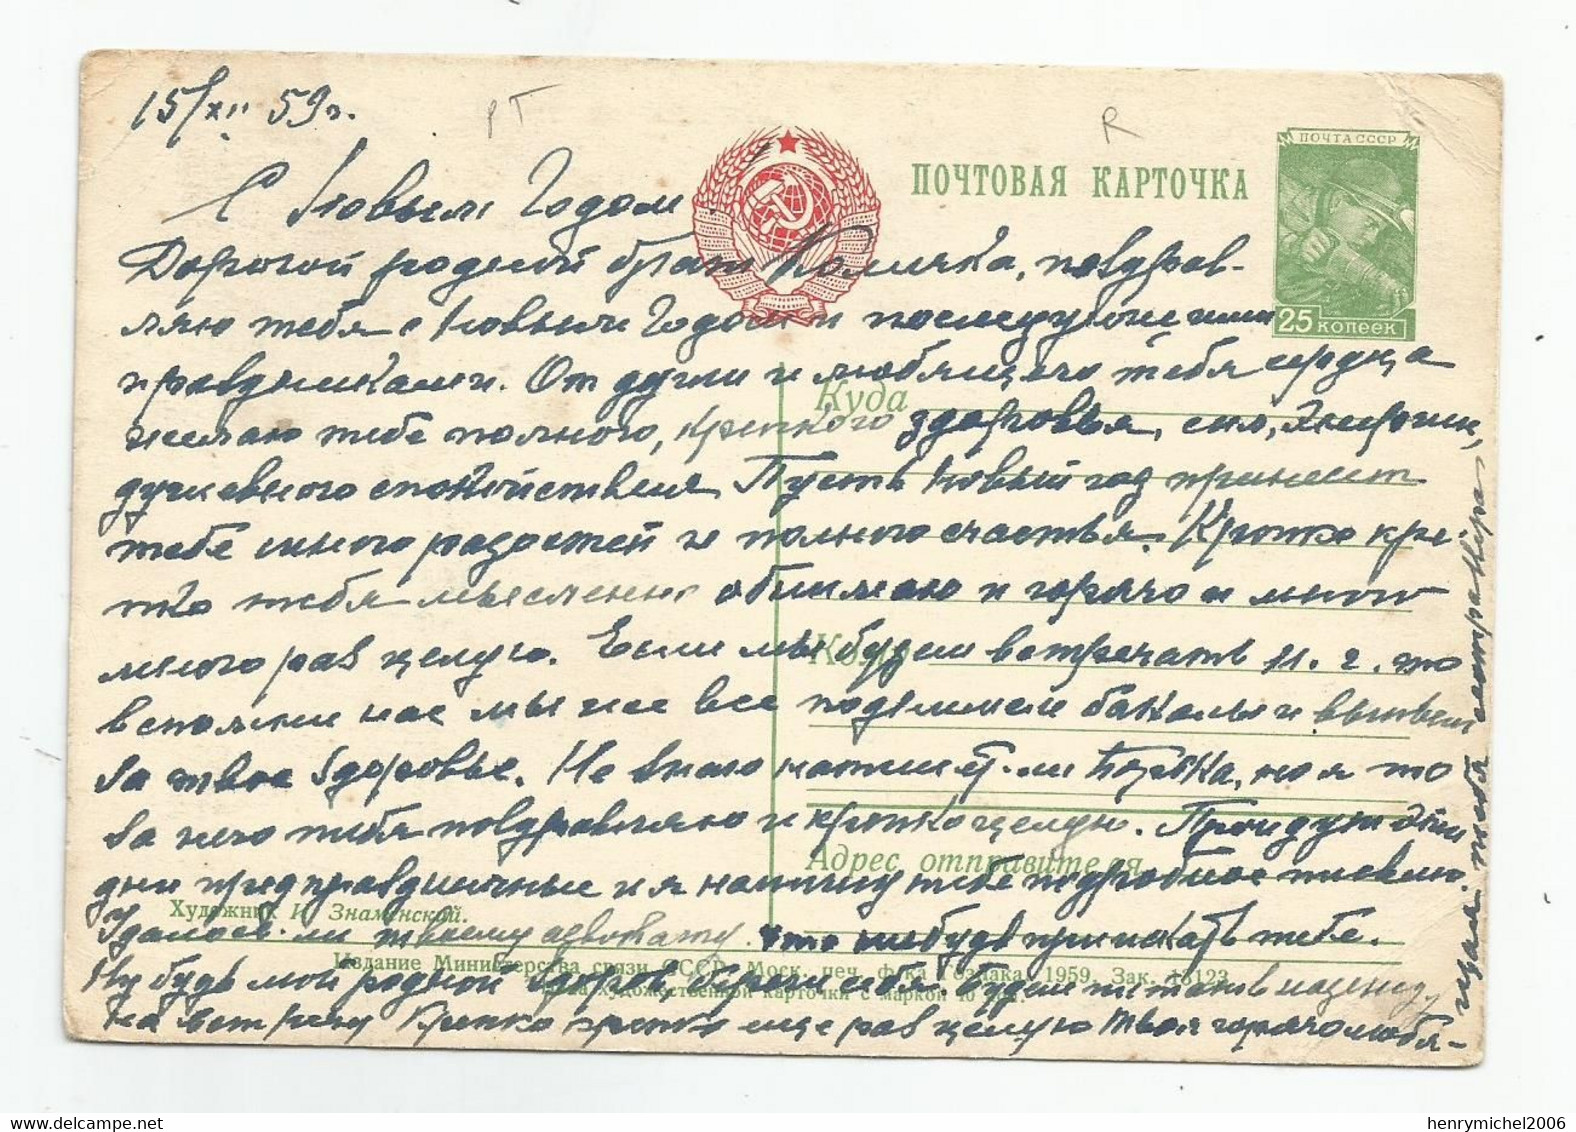 15/XII 59г.
С Новым Годом!
ПОЧТОВАЯ КАРТОЧКА
ПОЧТА СССР
25 КОПЕЕК
Дорогой родной брат Колечка, поздрав-
ляю тебя с Новым Годом и последующими
праздниками. От души и любящего тебя сердца
желаю тебе полного, крепкого здоровья, сил, энергии,
душевного спокойствия. Пусть Новый год принесет
тебе много радостей и полного счастья. Крепко кре-
пко тебя мысленно обнимаю и горячо и много
много раз целую. Если мы будем встречать н. г. то
вспомни нас мы же все поднимем бокалы и выпьем
за твое здоровье. Не знаю напишет-ли Борька, но я то
за него тебя поздравляю и крепко целую. Пройдут эти
дни предпраздничные и я напишу тебе подробное письмо.
Удалось-ли твоему адвокату что нибудь приискать тебе.
Ну будь мой родной здоров, береги себя. Будем питать надежду
на встречу Крепко крепко еще раз целую Твоя горячо любя-
щая тебя сестра Нюра
Куда
Кому
Адрес отправителя
Художник И. Знаменской.
Издание Министерства связи СССР. Моск. печ. ф-ка Гознака. 1959. Зак. 13123
художественной карточки с маркой 40 коп.
PT
R
henrymichel2006